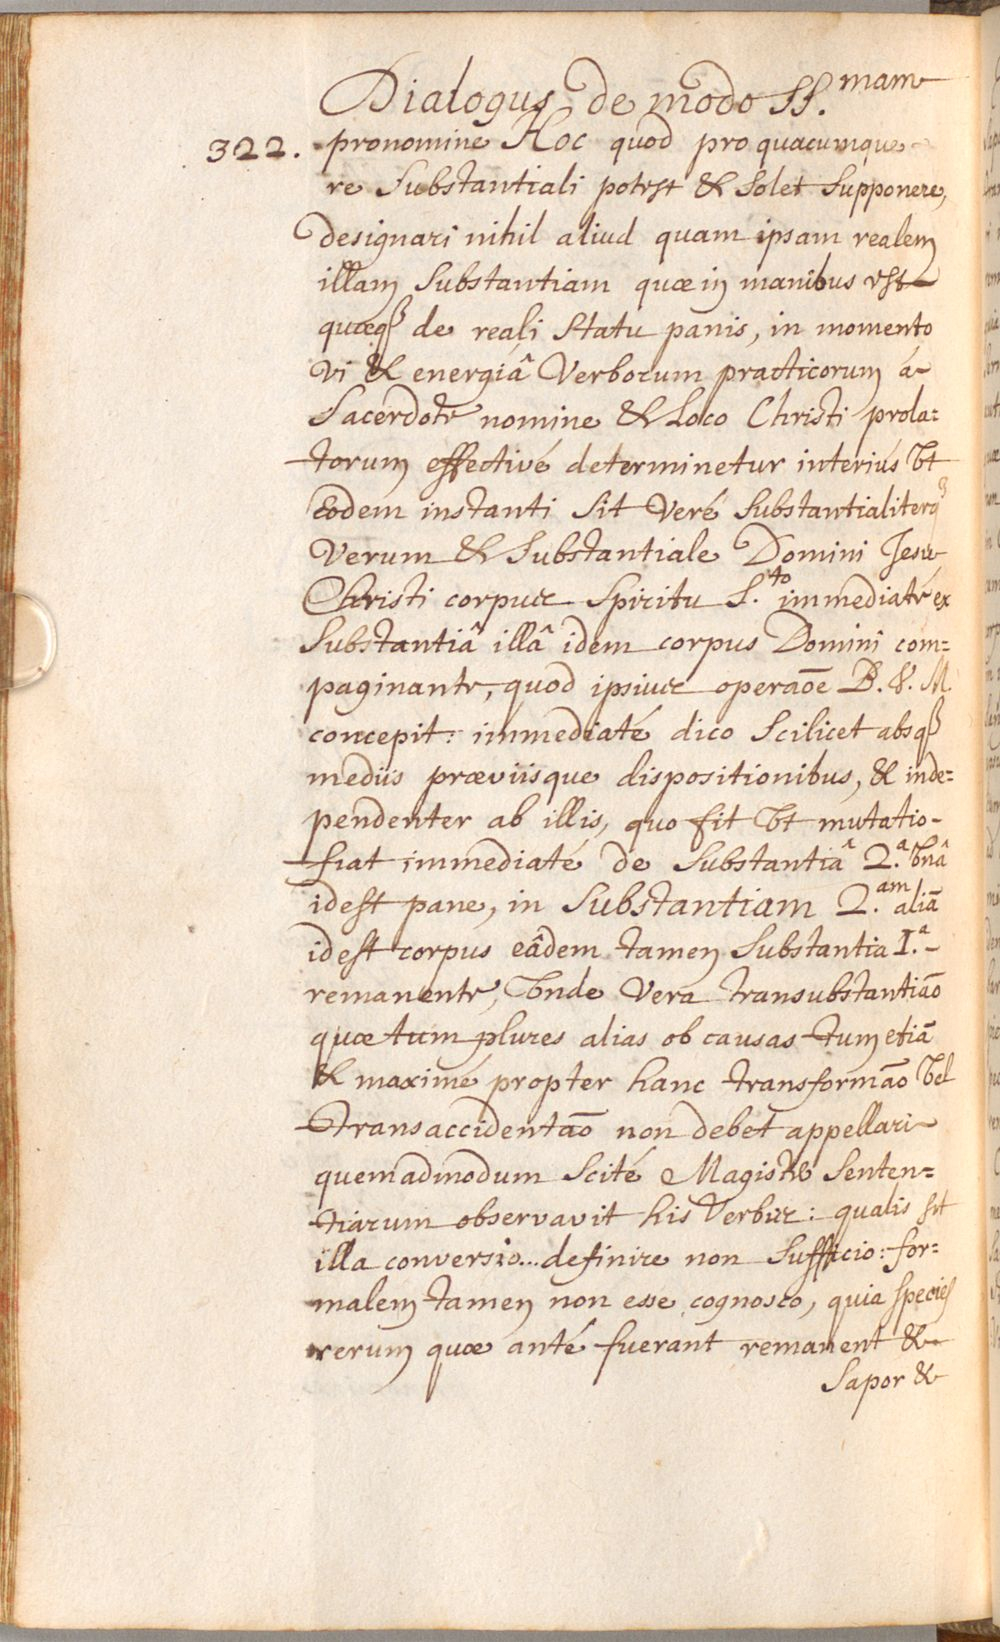 Dialogus de modo SS.mam
322. pronomine Hoc quod pro quacumque
re Substantiali potest & solet Supponere,
designari nihil aliud quam ipsam realem
illam Substantiam quæ in manibus est
quæq3 de reali statu panis, in momento
vi & energiâ Verborum practicorum á
Sacerdote nomine & Loco Christi prola=
torum effectivé determinetur interiús Ut
Eodem instanti Sit Veré Substantialiterq3
Verum & Substantiale Domini Jesu
Christi corpus Spiritu S.to immediaté ex
Substantiâ illâ idem corpus Domini com=
paginante, quod ipsius operaõe B. V. M.
concepit: immediaté dico Scilicet absq3
mediis præviisque dispositionibus, & inde=
pendenter ab illis, quo fit Ut mutatio
fiat immediaté de Substantiâ 2.â Unâ
idest pane, in Substantiam 2.am aliã
idest corpus eâdem tamen Substantia I.a
remanente, Unde Vera transubstantiaõ
quæ tum plures alias ob causas tum etiã
& maximé propter hanc transformaõ Vel
transaccidentaõ non debet appellari
quemadmodum Scité Magister Senten=
tiarum observavit his Verbis: qualis sit
illa conversio... definire non Sufficio: for=
malem tamen non esse cognosco, quia species
rerum quæ anté fuerant remanent &
Sapor &